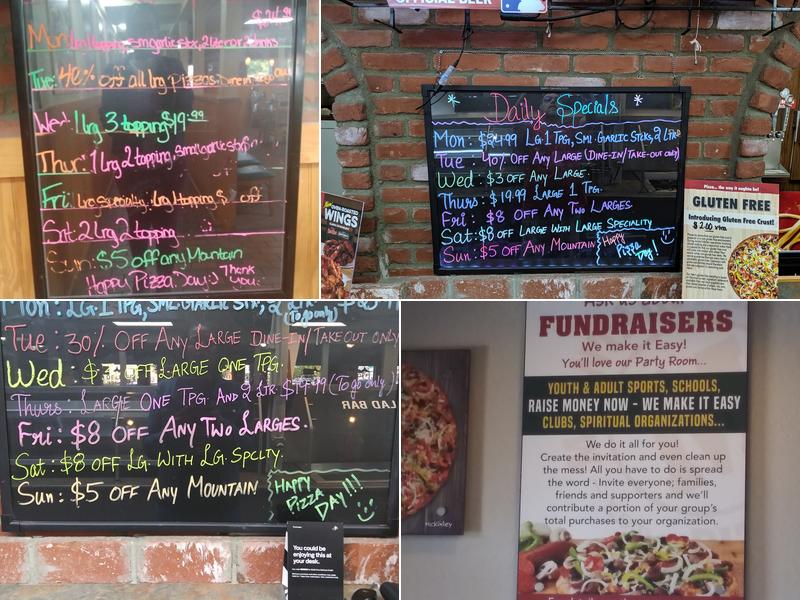 Mon: 1 lrg 1 topping, sm garlic stx, 2 liter or 2
Tue: 40% off all lrg Pizzas. Dine in
Wed: 1 lrg 3 topping $19.99
Thur: 1 lrg 2 topping, small garlic stx
Fri: Lrg Specialty, Lrg 1 topping $ off
Sat: 2 lrg 2 topping
Sun: $5 off any Mountain
Happy Pizza Day :) Thank you
OFFICIAL BEER
Daily Specials
Mon: $24.99 LG. 1 TPG, SML GARLIC STCKS, 2 LTR
Tue: 40% OFF ANY LARGE (DINE-IN/TAKE-OUT ONLY)
Wed: $3 OFF ANY LARGE
Thurs: $19.99 LARGE 1 TPG.
Fri: $8 OFF ANY TWO LARGES
Sat: $8 OFF LARGE WITH LARGE SPECIALITY
Sun: $5 OFF ANY MOUNTAIN
Happy Pizza Day!
OVEN-ROASTED
WINGS
Pizza... the way it oughta be!
GLUTEN FREE
Introducing Gluten Free Crust!
$2.00 xtra
Mon: LG. 1 TPG, SML GARLIC STX, 2
(To go only)
Tue: 30% OFF ANY LARGE DINE-IN/TAKE OUT ONLY
Wed: $3 OFF LARGE ONE TPG.
Thurs: LARGE ONE TPG. AND 2 LTR. $19.99 (To go only)
Fri: $8 OFF ANY TWO LARGES.
Sat: $8 OFF LG. WITH LG. SPCLTY.
Sun: $5 OFF ANY MOUNTAIN
HAPPY
PIZZA
DAY!!!
You could be
enjoying this at
your desk.
ASK us about
FUNDRAISERS
We make it Easy!
You'll love our Party Room...
YOUTH & ADULT SPORTS, SCHOOLS,
RAISE MONEY NOW - WE MAKE IT EASY
CLUBS, SPIRITUAL ORGANIZATIONS...
We do it all for you!
Create the invitation and even clean up
the mess! All you have to do is spread
the word - Invite everyone; families,
friends and supporters and we'll
contribute a portion of your group's
total purchases to your organization.
McKinley